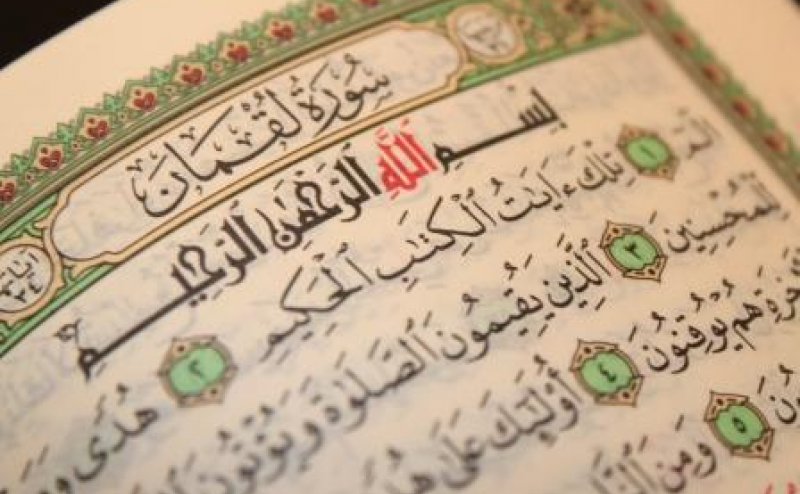 سُورَةُ لُقْمَانَ
بِسْمِ اللَّهِ الرَّحْمَٰنِ الرَّحِيمِ
الٓمٓ ١ تِلْكَ ءَايَٰتُ الْكِتَٰبِ الْحَكِيمِ ٢ هُدًى
لِّلْمُحْسِنِينَ ٣ الَّذِينَ يُقِيمُونَ الصَّلَوٰةَ وَيُؤْتُونَ
هُمْ يُوقِنُونَ ٤ أُوْلَٰٓئِكَ عَلَىٰ
٥ وَمِنَ